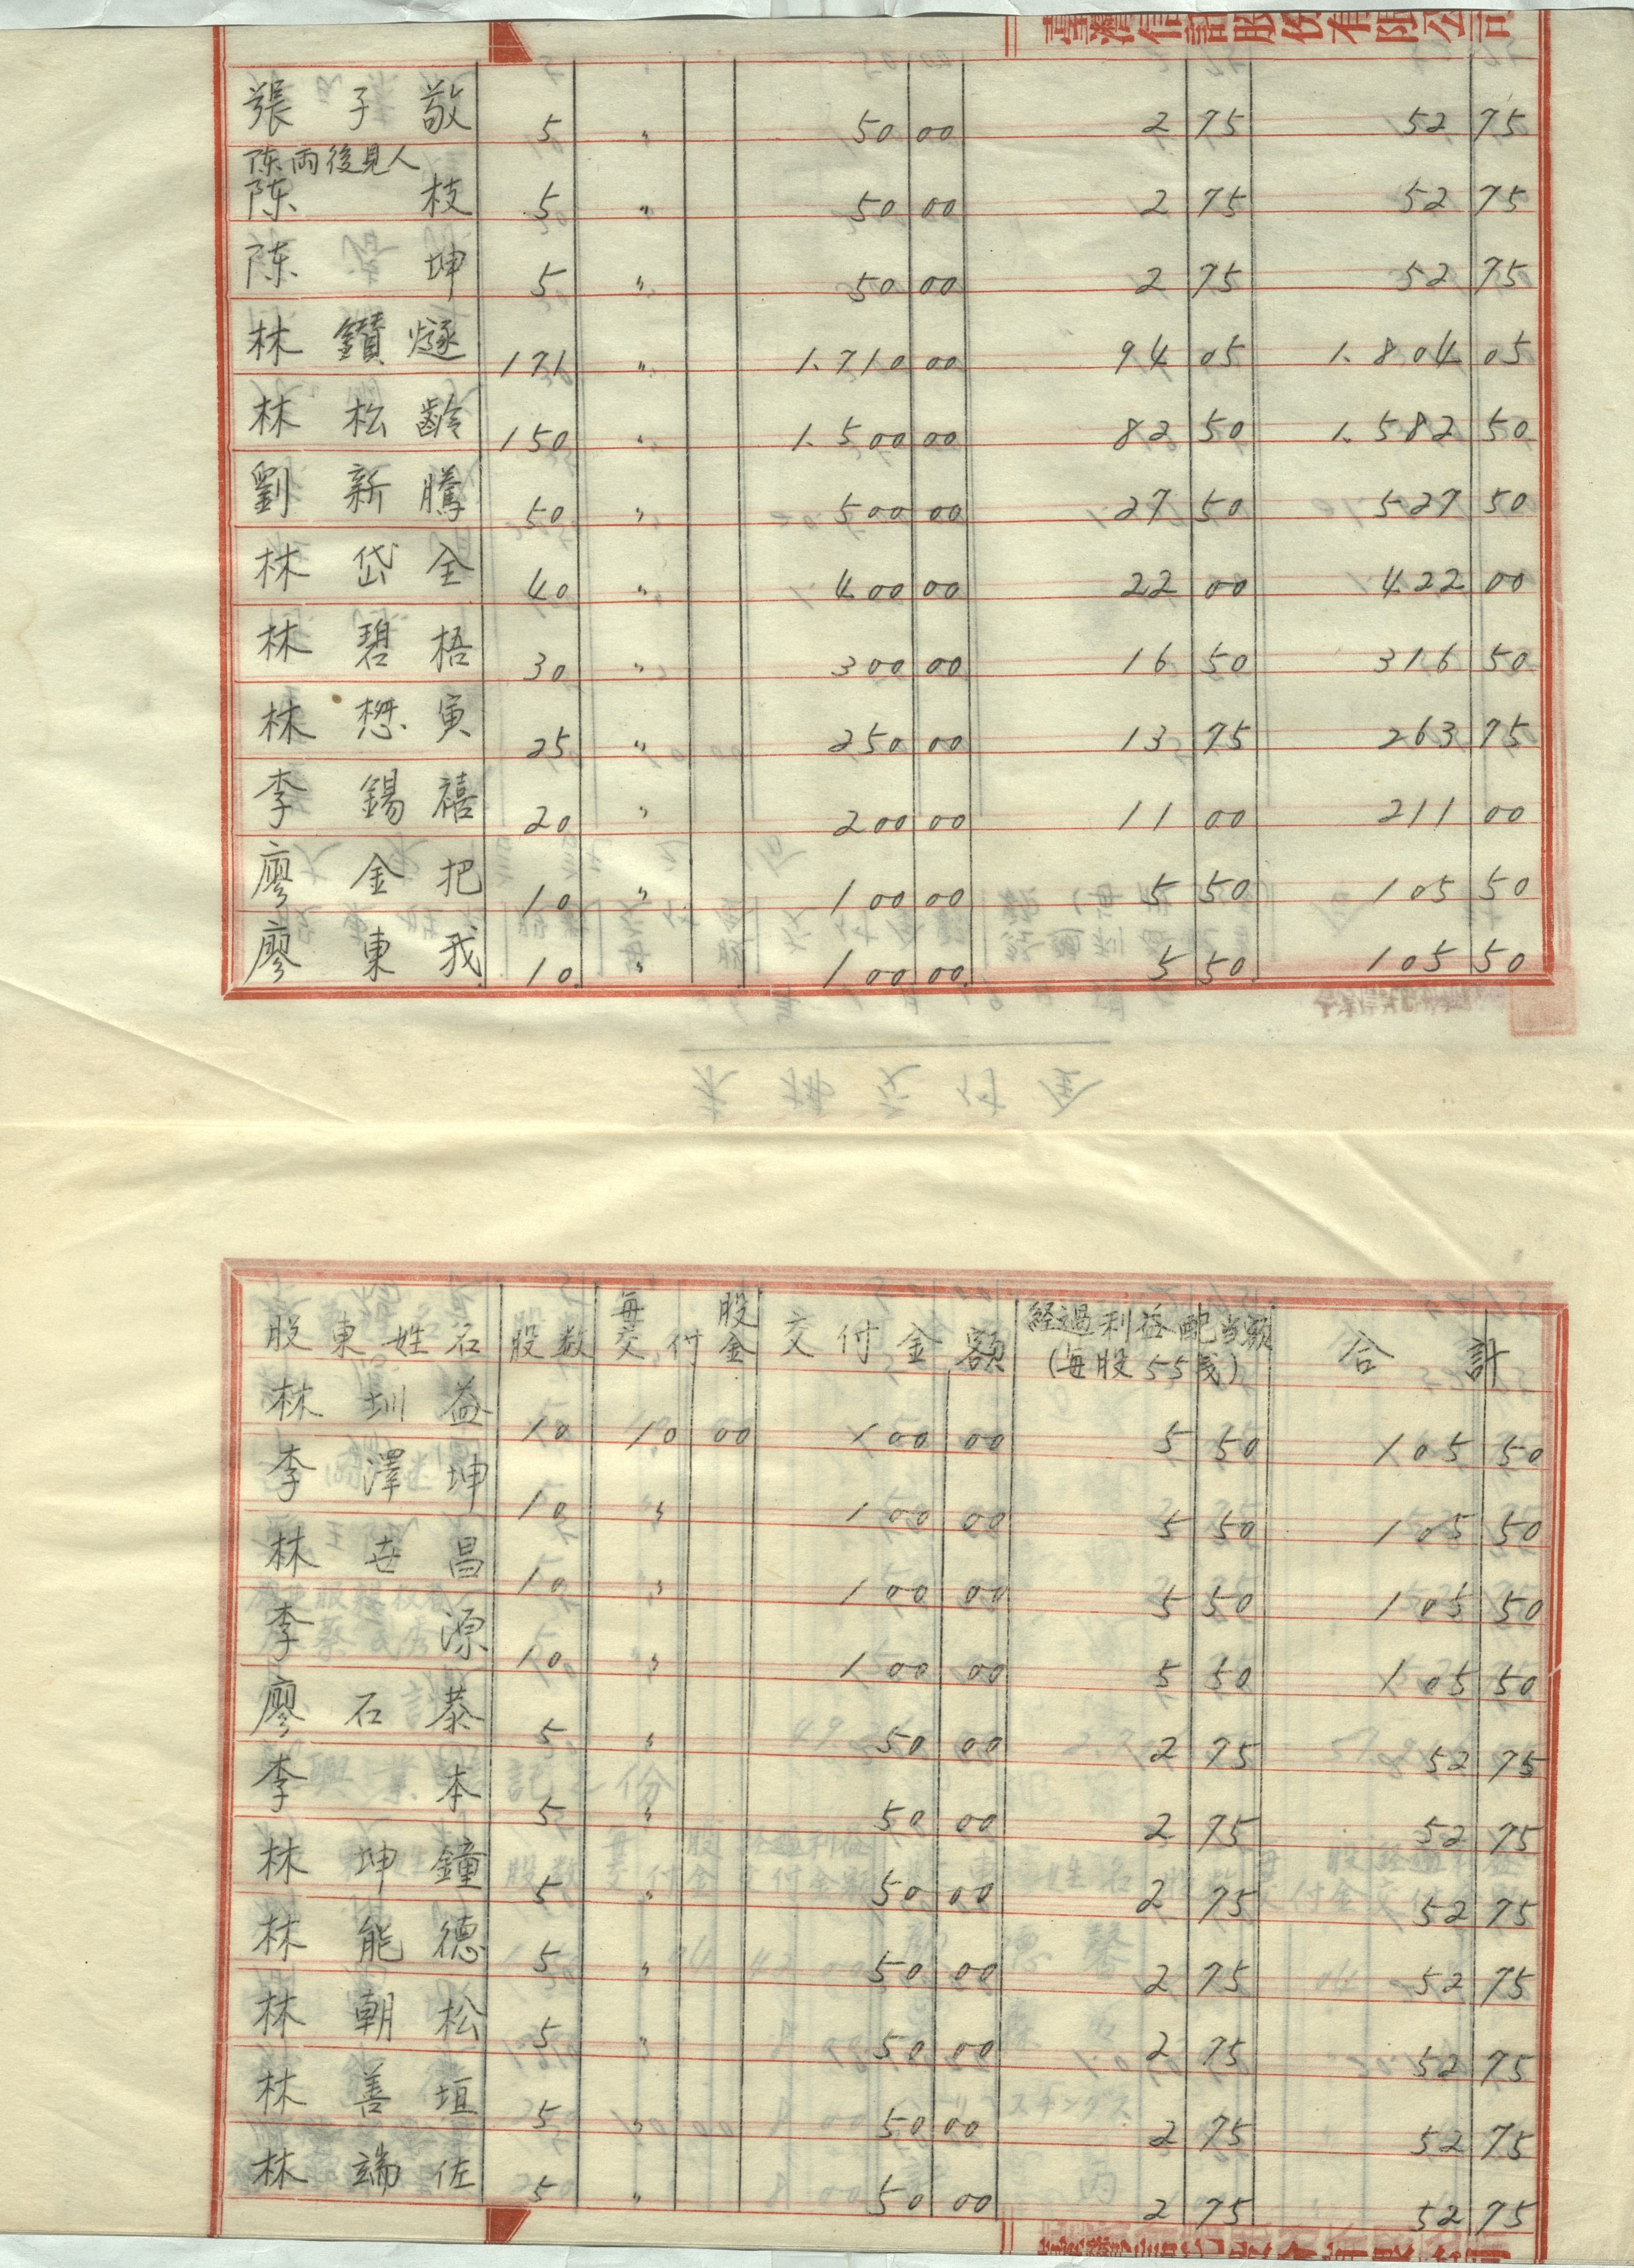 臺灣信託股份有限公司
張子敬 5 〃 50 00 2 75 52 75
陈雨後見人
陈枝 5 〃 50 00 2 75 52 75
陈坤 5 〃 50 00 2 75 52 75
林鑽燧 171 〃 1.710 00 94 05 1.804 05
林松齡 150 〃 1.500 00 82 50 1.582 50
劉新騰 50 〃 500 00 27 50 527 50
林岱全 40 〃 400 00 22 00 422 00
林碧梧 30 〃 300 00 16 50 316 50
林懋寅 25 〃 250 00 13 75 263 75
李錫禧 20 〃 200 00 11 00 211 00
廖金把 10 〃 100 00 5 50 105 50
廖東我 10 〃 100 00 5 50 105 50
股東姓名 股数 每股交付金 交付金額 経過利益配当額(每股55戋) 合計
林圳益 10 10 00 100 00 5 50 105 50
李澤坤 10 〃 100 00 5 50 105 50
林世昌 10 〃 100 00 5 50 105 50
李源 10 〃 100 00 5 50 105 50
廖石恭 5 〃 50 00 2 75 52 75
李本 5 〃 50 00 2 75 52 75
林坤鐘 5 〃 50 00 2 75 52 75
林能德 5 〃 50 00 2 75 52 75
林朝松 5 〃 50 00 2 75 52 75
林善垣 5 〃 50 00 2 75 52 75
林端佐 5 〃 50 00 2 75 52 75